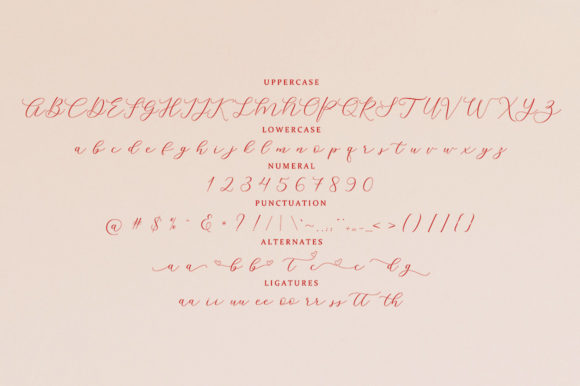 UPPERCASE
ABCDEFGHIJKLMNOPQRSTUVWXYZ
LOWERCASE
a b c d e f g h i j k l m n o p q r s t u v w x y z
NUMERAL
1 2 3 4 5 6 7 8 9 0
PUNCTUATION
@ # $ % & * ? ! / | \ ~ + = - _ < > ( ) [ ] { }
ALTERNATES
a a b b t c c d g
LIGATURES
aa ii uu ee oo rr ss tt th